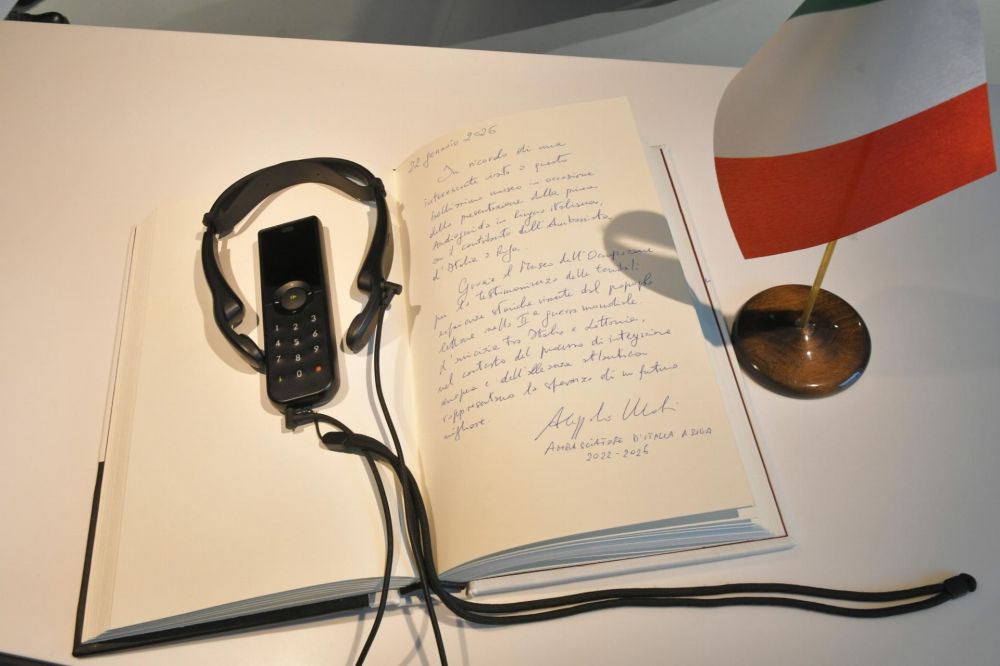 22 gennaio 2026
In ricordo di una
interessante visita a questo
bellissimo museo in occasione
della presentazione della prima
Audioguida in lingua italiana,
con il contributo dell'Ambasciata
d'Italia a Riga.
Grazie al Museo dell'Occupazione
per la testimonianza delle terribili
esperienze storiche vissute dal popolo
lettone nella II guerra mondiale.
L'amicizia tra Italia e Lettonia,
nel contesto del processo di integrazione
europea e dell'alleanza atlantica
rappresentano la speranza di un futuro
migliore.
AMBASCIATORE D'ITALIA A RIGA
2022-2026
1 2 3
4 5 6
7 8 9
0